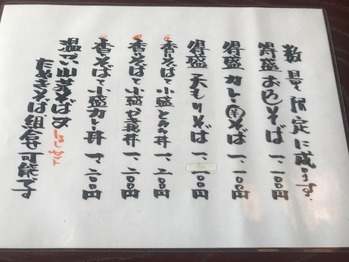 数量限定に成ります。
得盛おろしそば 一、一〇〇円
得盛カレー南そば 一、一〇〇円
得盛天もりそば 一、二〇〇円
香りそばで小盛とろろ丼 一、二〇〇円
香りそばで小盛 丼 一、二〇〇円
香りそばで小盛カレー丼 一、二〇〇円
温つい山芋そば
たぬきそば組合可能です